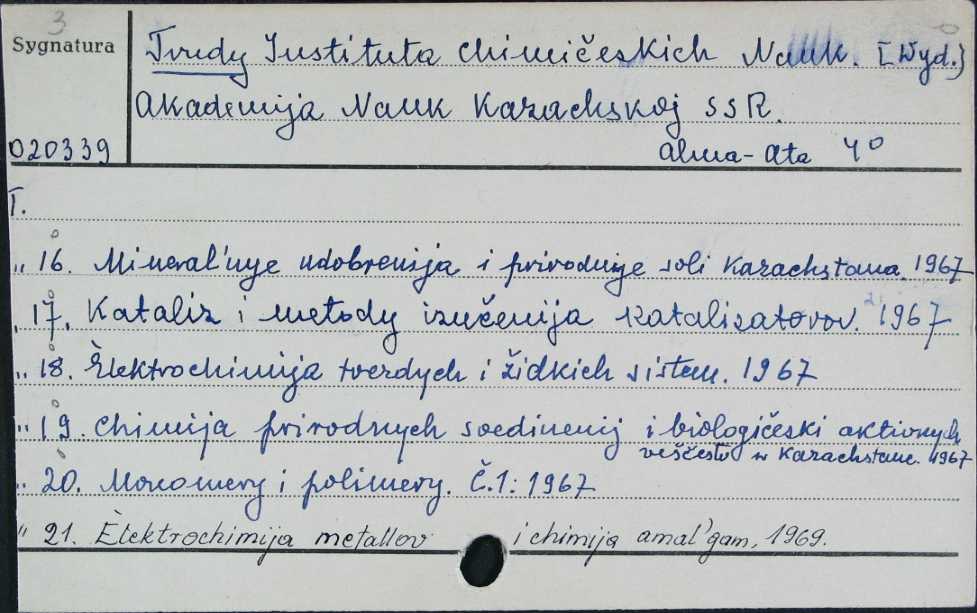 3
Sygnatura
Trudy Instituta Chimičeskich Nauk. [Wyd.]
Akademija Nauk Kazachskoj SSR.
020339
Alma-Ata 4°
T.
„ 16. Mineral'nye udobrenija i prirodnye soli Kazachstana. 1967
„ 17. Kataliz i metody izučenija katalizatorov. 1967
„ 18. Èlektrochimija tverdych i židkich sistem. 1967
„ 19. Chimija prirodnych soedinenij i biologičeski aktivnych
veščestv w Kazachstane. 1967
„ 20. Monomery i polimery. Č.1: 1967
" 21. Èlektrochimija metallov i chimija amal'gam. 1969.